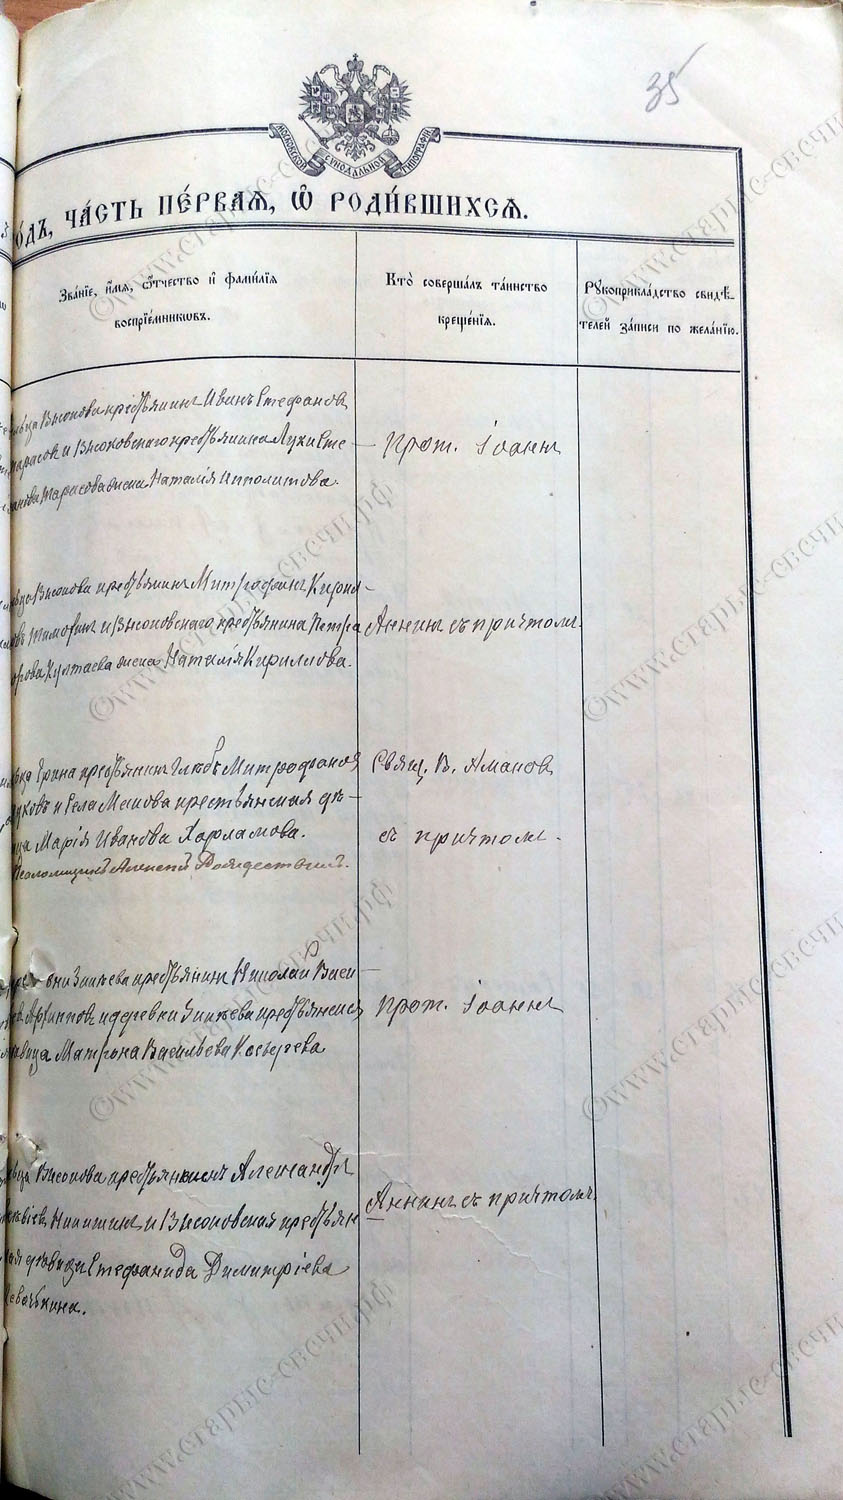 35
МОСКОВСКОЙ СУНОДАЛЬНОЙ ТИПОГРАФІИ
ѻ́дъ, ча́сть пе́рваѧ, ѡ҆ роди́вшихсѧ.
Зва́нїе, и҆́мѧ, ѻ҆́тчество и҆ фами́лїѧ
воспрїе́мникѡвъ.
Кто̀ соверша́лъ та́инство
креще́нїѧ.
Рꙋкоприкла́дство свидѣ́-
телей за́писи по жела́нїю.
Высокова крестьянинъ Иванъ Стефановъ
Тарасовъ и Высоковскаго крестьянина Луки Сте-
Тарасова жена Наталія Ипполитова.
Прот. Іоаннъ
Высокова крестьянинъ Митрофанъ Кирил-
Тимофинъ и Высоковскаго крестьянина Петра
Култаева жена Наталія Кириллова.
Аннинъ съ причтомъ.
крестьянинъ Глѣбъ Митрофановъ
и села крестьянская дѣ-
ица Марія Иванова Харламова.
Псаломщикъ Алексѣй Рождественскій.
Свящ. В. Аманов
съ причтомъ.
крестьянинъ Николай Васи-
Архиповъ и деревни крестьянская
дѣвица Матрона Васильева
Прот. Іоаннъ
Высокова крестьянинъ Александръ
Никитинъ и Высоковская крестьян
дѣвица Стефанида Димитріева
Аннинъ съ причтомъ
©www.старые-свечи.рф